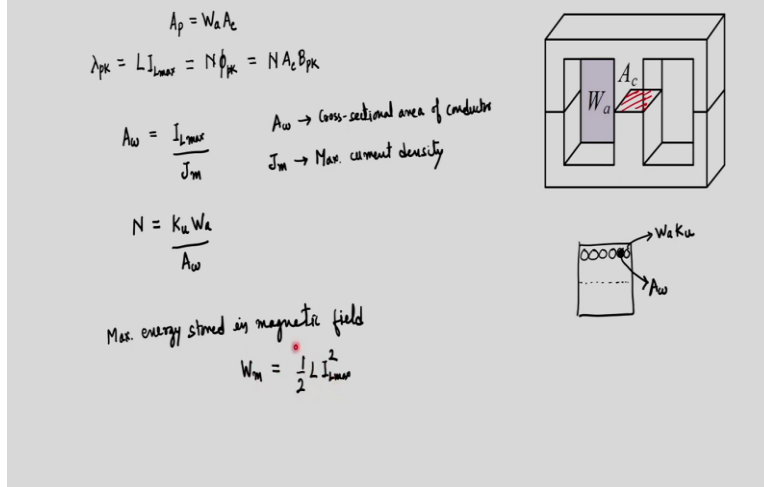 A_p = W_a A_c
λ_pk = L I_Lmax = N ϕ_pk = N A_c B_pk
A_w = I_Lmax / J_m
A_w → Cross-sectional area of conductor
J_m → Max. current density
N = K_u W_a / A_w
Max. energy stored in magnetic field
W_m = 1/2 L I_Lmax^2
A_c
W_a
W_a K_u
A_w